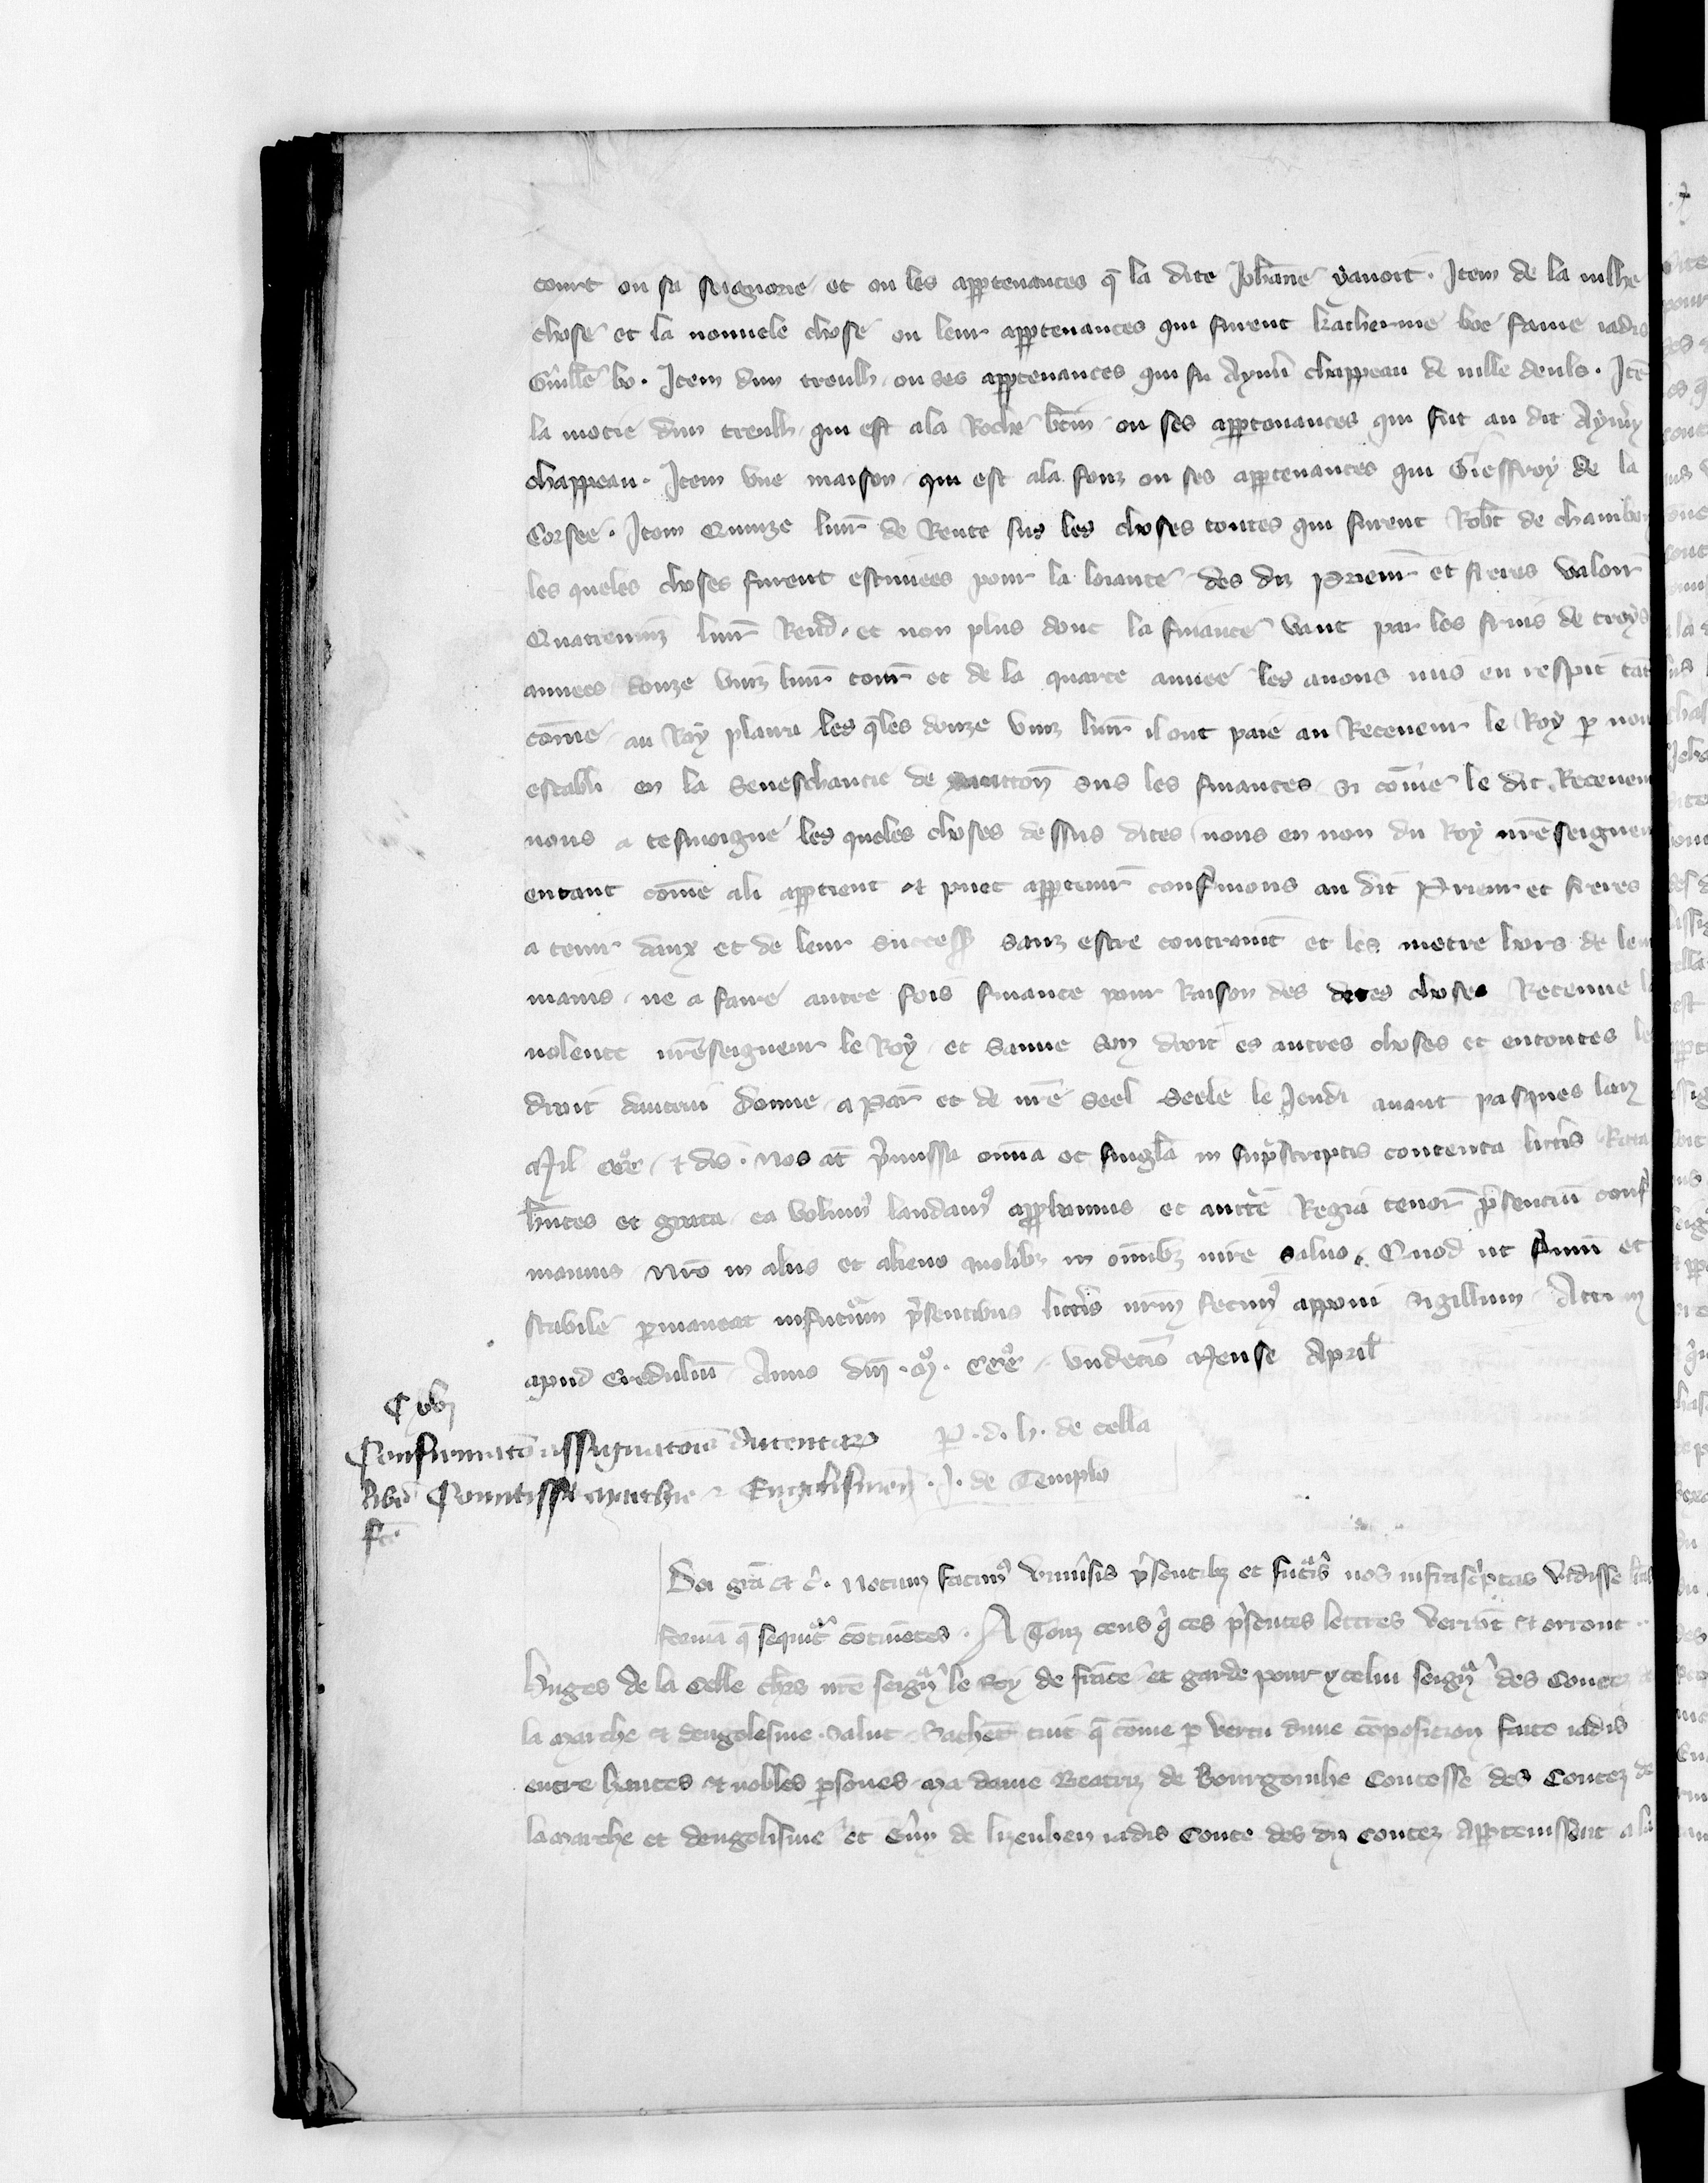 court ou sa seignorie et ou les appartenances q̄ la dite Joh̄ane yavoit. Item de la uilhe
chose et la nouuele chose ou leur appartenances qui furent katherine boe fame iadis
Guill̄e bo. Item dun treulh ou ses appartenances qui fu Aym̄i chappeau de uille deuls. Itē
la motie dun treulh qui est ala Roche ou ses appartenances qui fut au dit Aym̄y
chappeau. Item vne maison qui est ala fonz ou ses appartenances qui Gieffroy de la
Corsee. Item Quinze liur̄ de Rente sus les choses toutes qui furent Rob̄t de chamber
les queles choses furent estimees pour la loiaute des diz Prieur̄ et freres valoir
Quatreuinz liur̄ Rend. et non plus dont la finance vaut par les fruis de troys
annees douze vinz liur̄ tour̄ et de la quarte annee les auons mis en respit tāt
cōme au Roy plaira les q̄les douze vinz liur̄ il ont paie au Receueur le Roy p nou
establi en la Seneschaucie de xantton̄ sus les finances si cōme le dit Receueu
nous a tesmoigne les queles choses dessus dites nous en non du Roy nr̄e seigneu
entant cōme ali appartient et puet appartenir confirmons au dit Prieur et freres
a tenir daux et de leur success̄ sanz estre contraint et les metre hors de leu
mains ne a faire autre fois finance pour Raison des dites choses Retenue l
uolente nr̄e seigneur le Roy et Sauue son droit es autres choses et entoutes le
droit dautrui Donne a Par̄ et de nr̄e Seel Seele le Jeudi auant pasques lan
Mil ccc̊ et dis. Nos at̄ p̄missa om̄ia et singl̄a in sup̄scriptis contenta litt̄is Rata
h̄ntes et grata ea volum᷒ laudam᷒ approbamus et auctē Regia tenor̄ p̄sentiū conf
mamus Nr̄o in aliis et alieno quolibz in om̄ibz iure saluo. Quod ut firmū et
stabile p̄maneat infutur̄um p̄sentibus litt̄is nr̄m fecim᷒ apponi Sigillum Actum
apud Credulium Anno dn̄i. m̊. ccc̊. vndecio Mense April̄
Confirmatō assignatōis ducentar̄
P. d. h. de cella
libr̄ Comitisse Marchie et Engolismen̄
. J. de Templo
fcā.
Dei gr̄a et c̄. Notum facim᷒ vniu̓sis p̄sentibz et futur̄is nos infrascriptas vidisse lr̄as
formā q̄ sequit᷑ cōtinētes. A Touz ceus q̇ ces p̄sentes lettres verrōt et orront.
Hugues de la Celle ch̄rs nr̄e seign᷑ le Roy de frāce et garde pour ycelui seign᷑ des Contez de
la Marche et dengolesme. salut Sachēt tuit q̄ cōme p vertu dune cōposicion faite iadis
entre hautes et nobles p̄sones ma dame Beatriz de Bourgoinhe Contesse des Contez de
la Marche et dengolisme et Guy de lizenhen iadis Conte des diz Contez Appartenissent a la